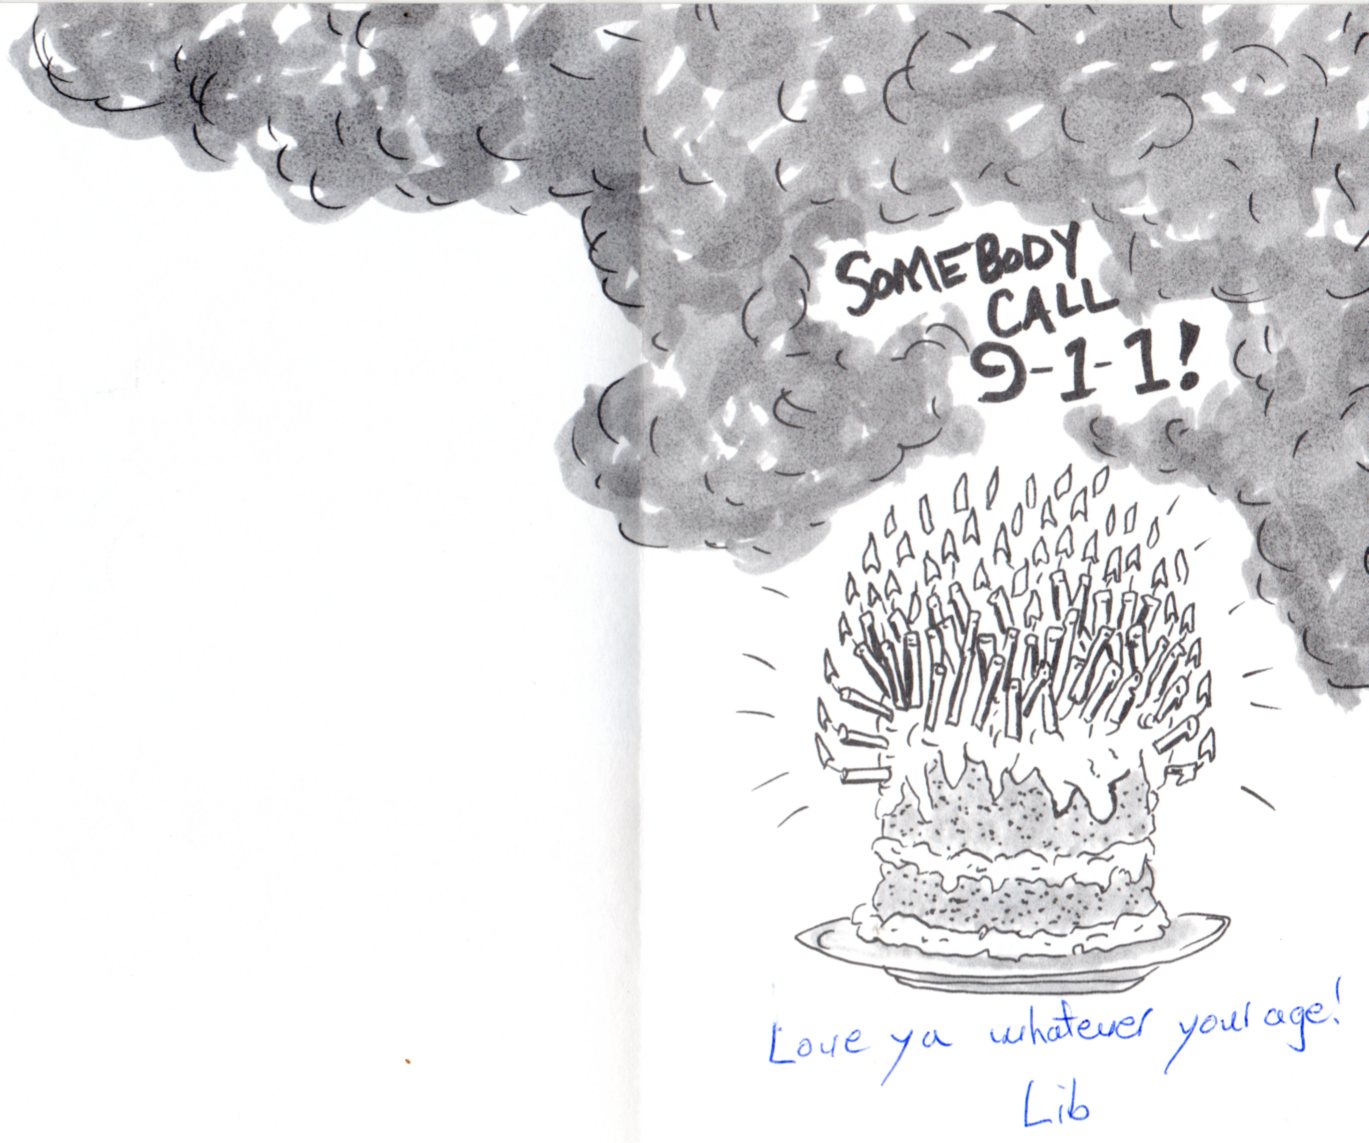 SOMEBODY
CALL
9-1-1!
Love ya whatever your age!
Lib